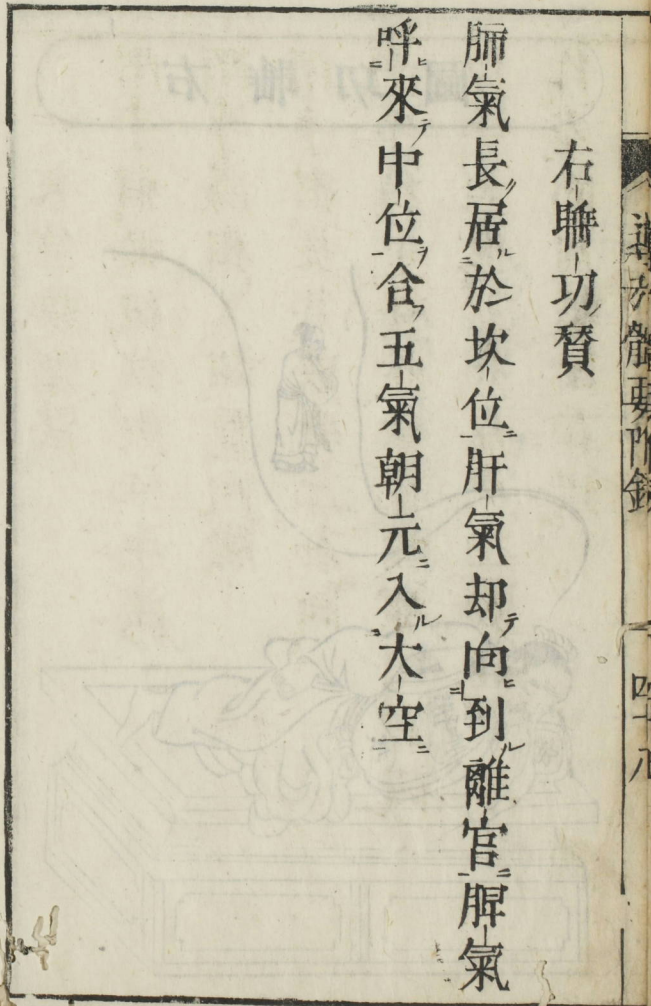 導引體要附錄 四十八
右睡功賛
肺氣長居於坎位肝氣却向到離官脾氣
呼來中位合五氣朝元入大空